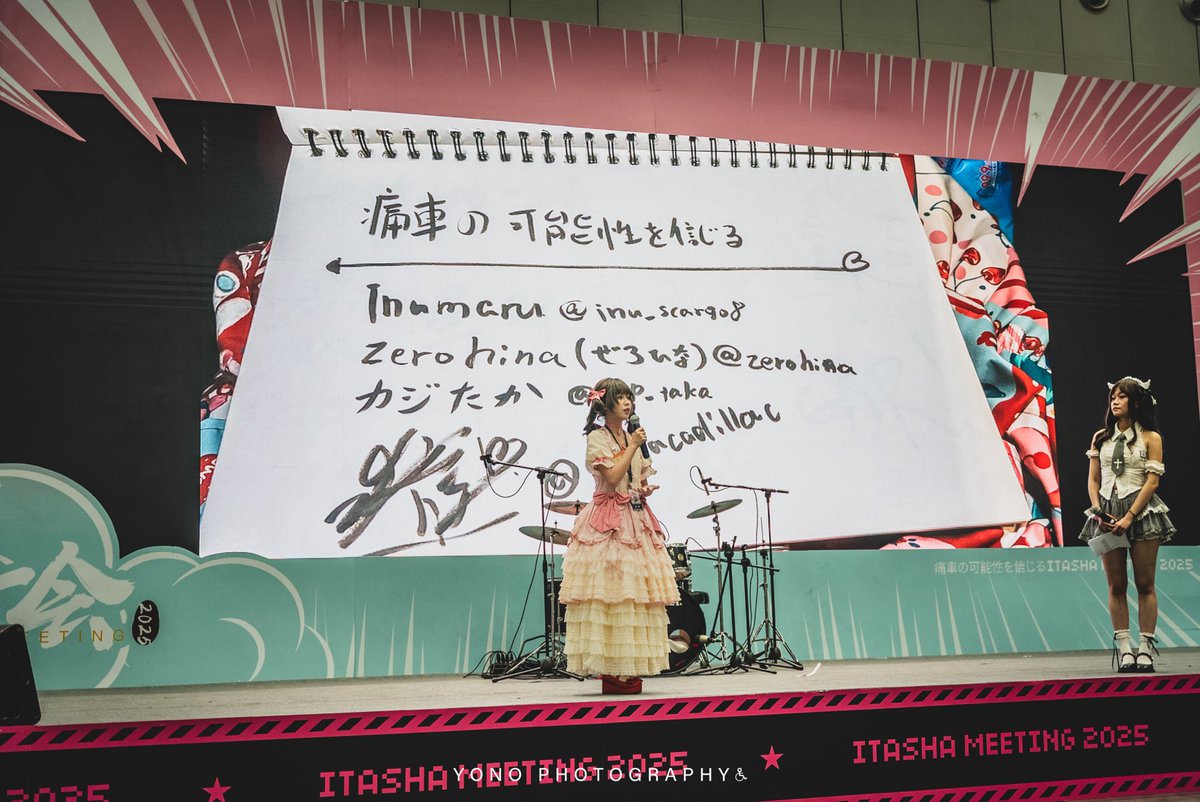 痛車の可能性を信じる
Inumaru @inu_scargo8
Zerohina (ぜろひな) @zerohina
カジたか @ _taka
@ acadillac
会
ETING 2025
痛車の可能性を信じるITASHA M TING 2025
2025 ★ ITASHA MEETING 2025 ★ ITASHA MEETING 2025
YONO PHOTOGRAPHY